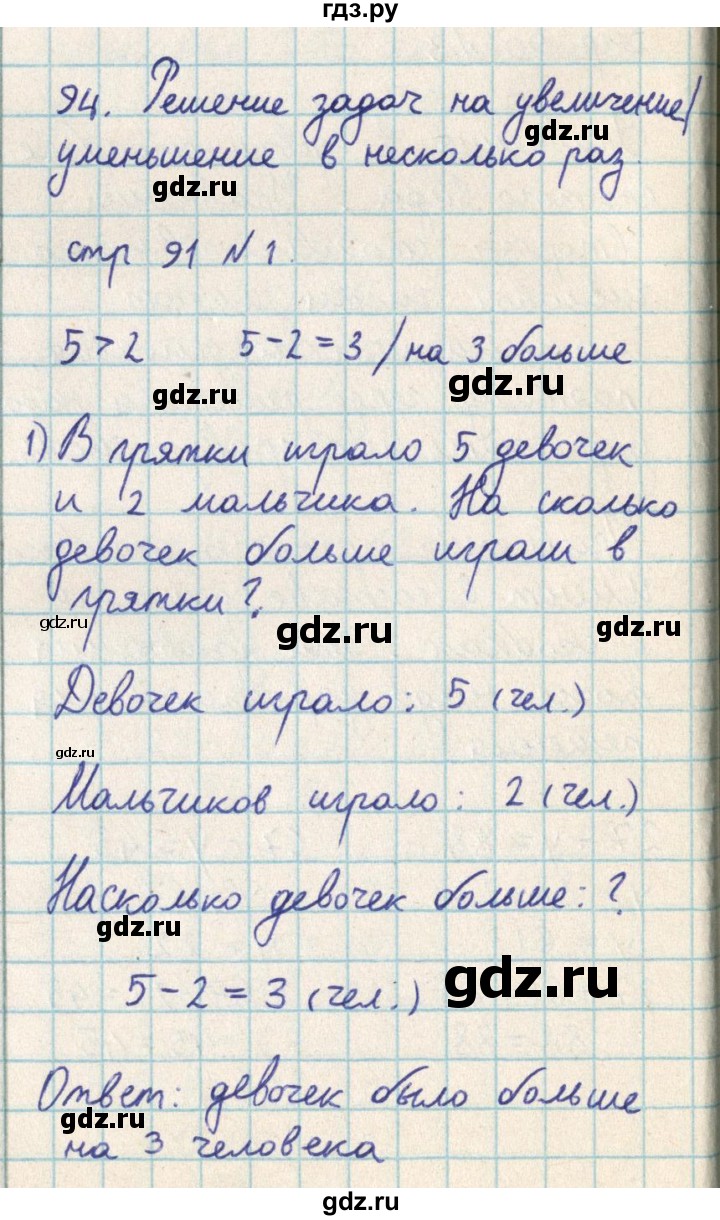 гдз.ру
94. Решение задач на увеличение/
уменьшение в несколько раз
gdz.ru gdz.ru
стр 91 №1.
5 > 2 5 - 2 = 3 / на 3 больше
gdz.ru gdz.ru
1) В прятки играло 5 девочек
и 2 мальчика. На сколько
девочек больше играли в
прятки?
gdz.ru gdz.ru gdz.ru
Девочек играло: 5 (чел.)
gdz.ru
Мальчиков играло: 2 (чел.)
Насколько девочек больше: ?
gdz.ru
5 - 2 = 3 (чел.)
gdz.ru
Ответ: девочек было больше
gdz.ru
на 3 человека
gdz.ru